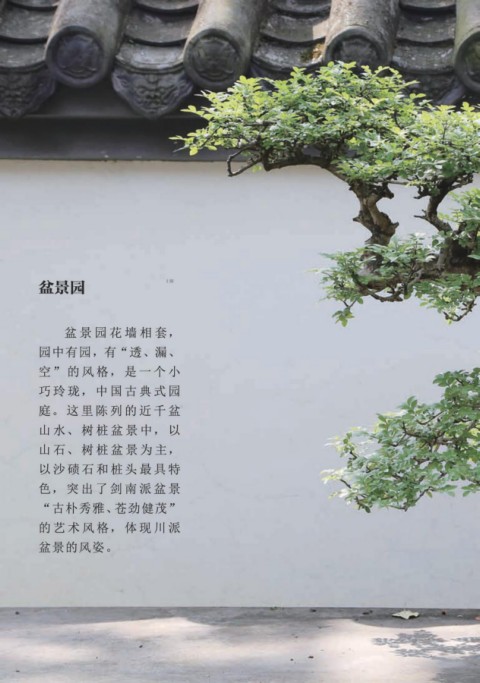 盆景园
盆景园花墙相套，
园中有园，有“透、漏、
空”的风格，是一个小
巧玲珑，中国古典式园
庭。这里陈列的近千盆
山水、树桩盆景中，以
山石、树桩盆景为主，
以沙碛石和桩头最具特
色，突出了剑南派盆景
“古朴秀雅、苍劲健茂”
的艺术风格，体现川派
盆景的风姿。